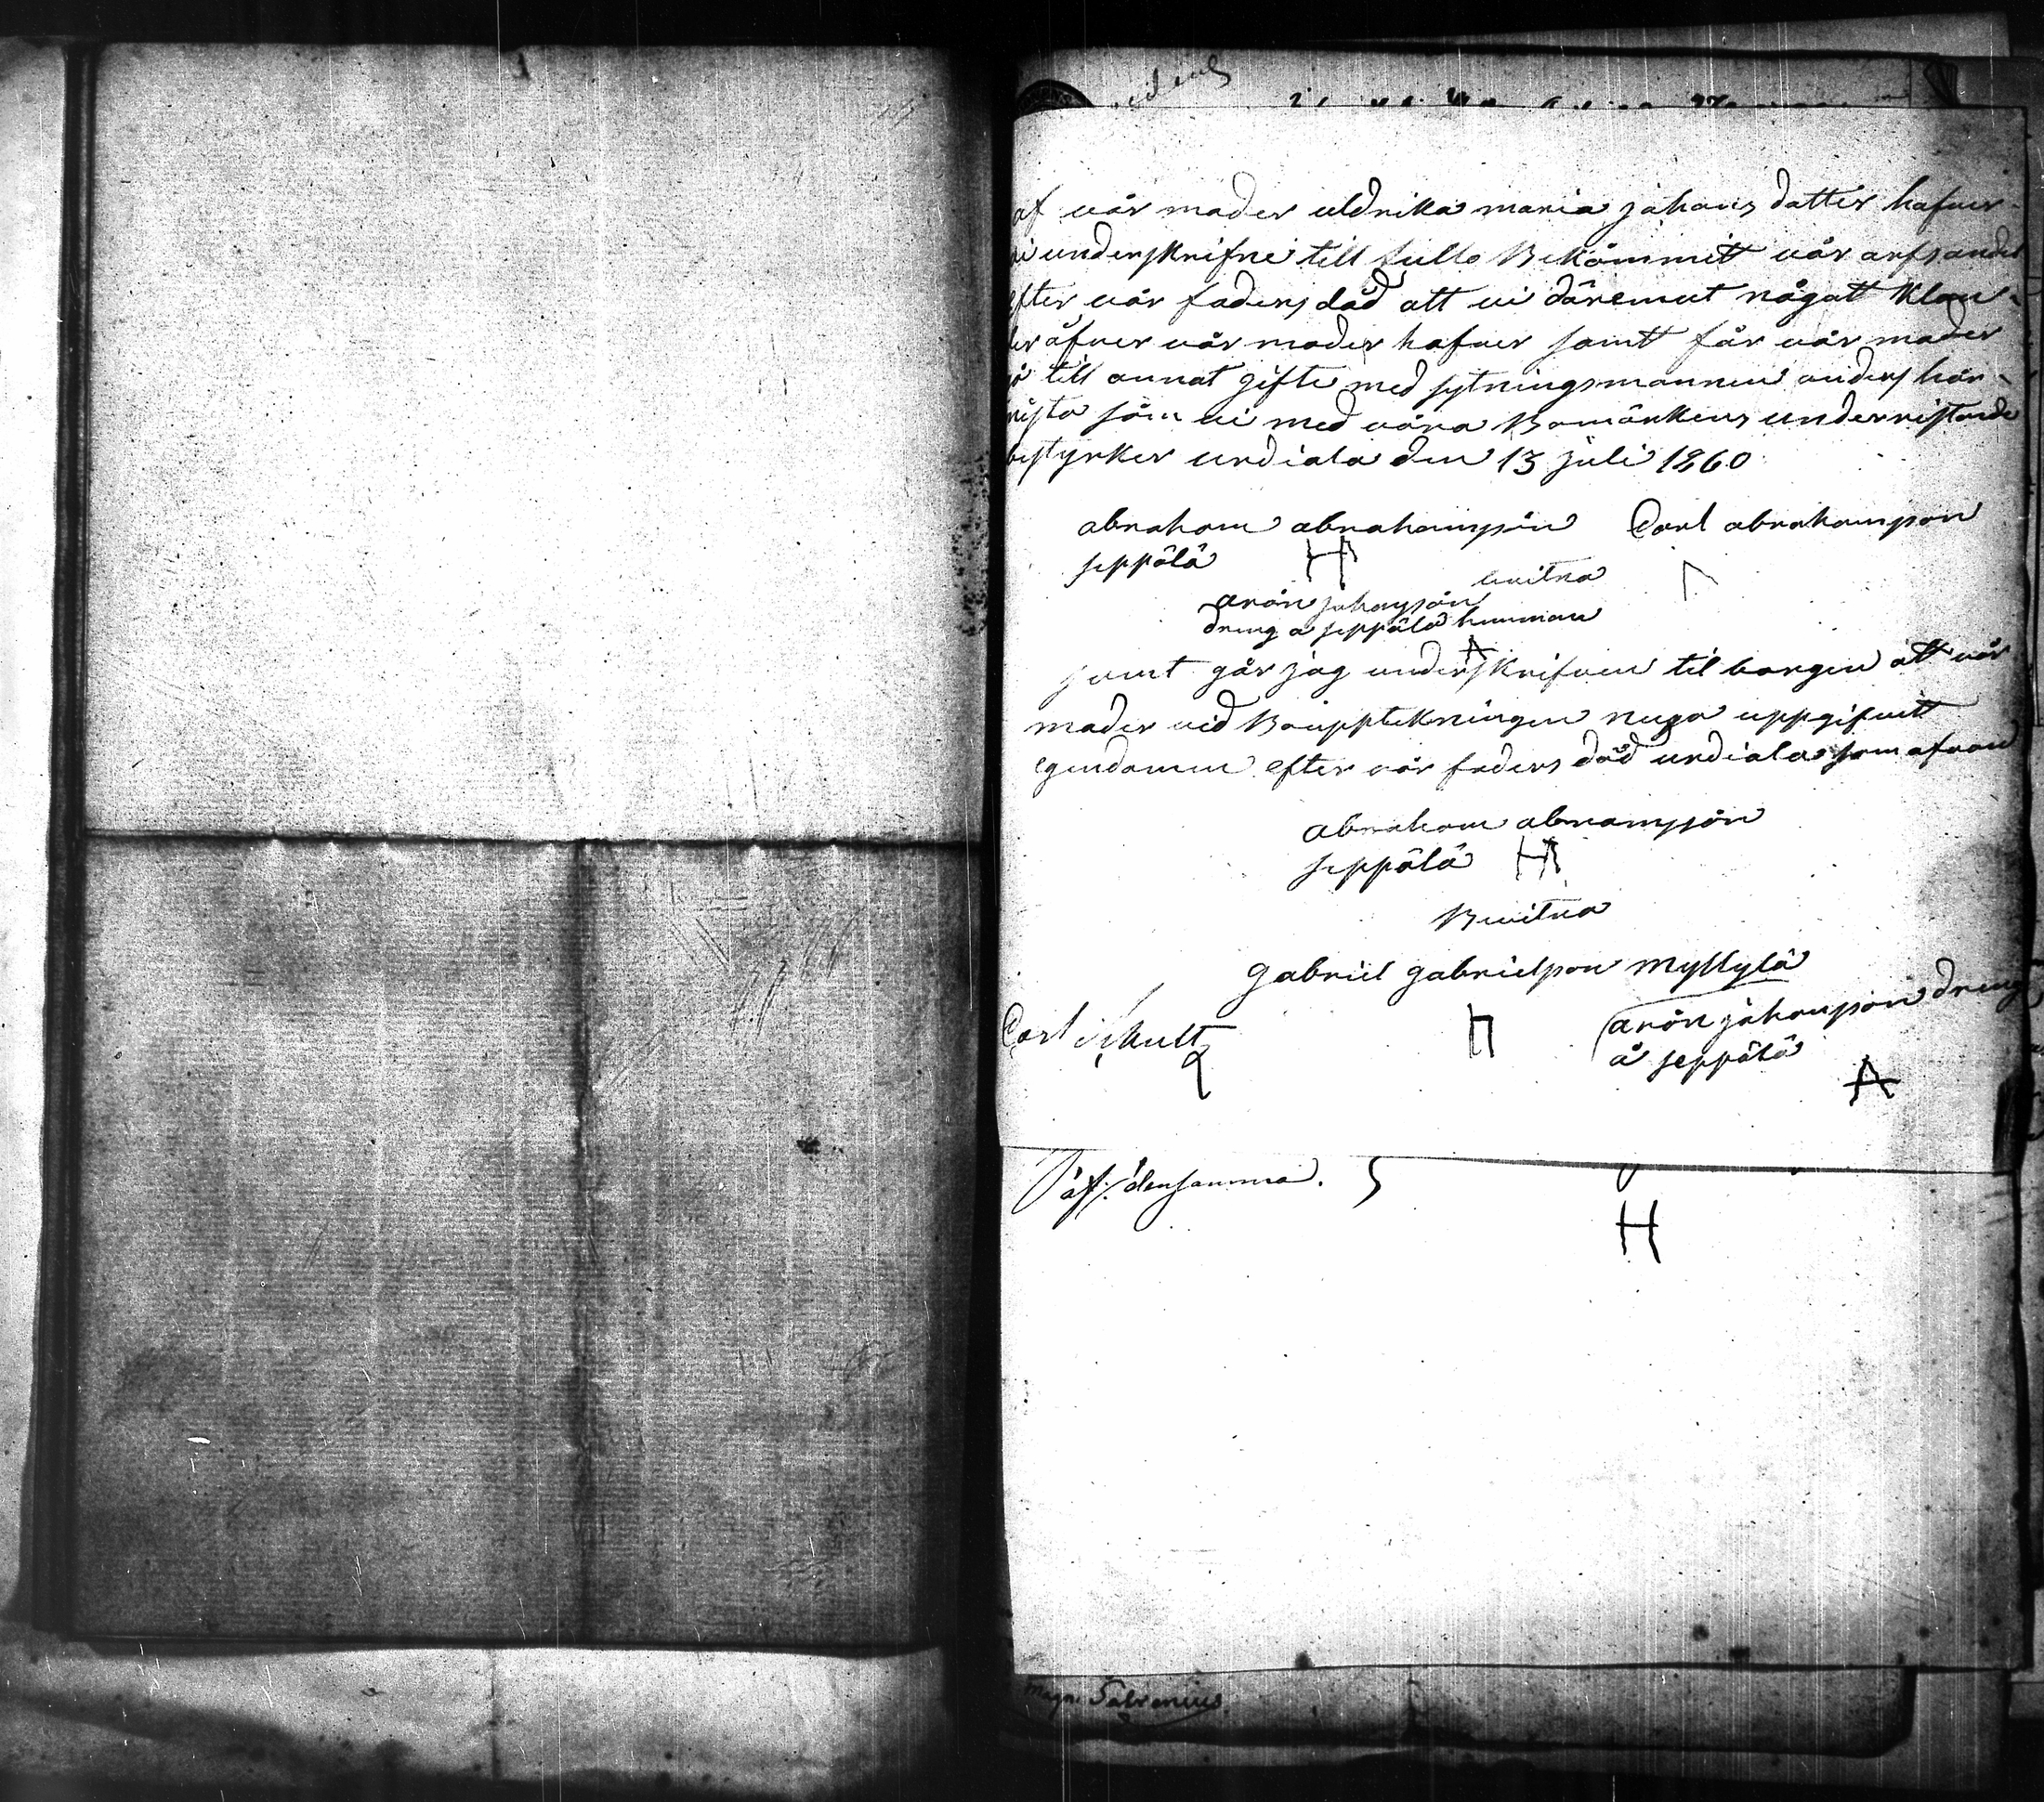 af vår mader uldrika maria johans datter hafuer
vi underskrifne till fullo Bekömmit vår arfsandel
efter vår faders död att vi däremut någatt klan-
der åfuer vår mader hafuer samt får vår mader
gå till annat gifte med sytningsmannen anders hör-
sistä söm vi med våra Bomärkens underristande
bestyrker urdiala den 13 juli 1860
abraham abrahamsson Carl abrahamsson
seppälä
bevitna
arön johansson
dreng a seppälä hemman
samt går jag underskrifuen til borgen att vår
mader vid Bouppteckningen noga uppgifuit
egendomen efter vår faders död urdiala som afvan
abraham abramsson
seppälä
Bevitna
gabriel gabrielsson Myllylä
Carl Skult
arön johansson dreng
å seppälä
densamma.
Magn. Salvenius